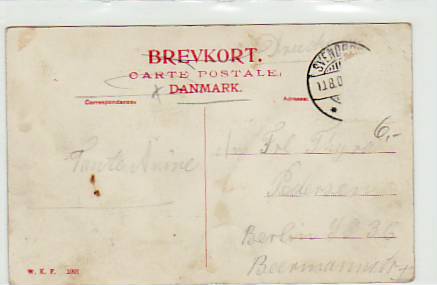 BREVKORT.
CARTE POSTALE.
DANMARK.
Correspondance:
Adresse:
SVENDBORG
11.8.0
6,-
Tante Anine
Frl Thyra
Pedersen
Berlin SO 36
Beermannstr
W. K. F. 1001